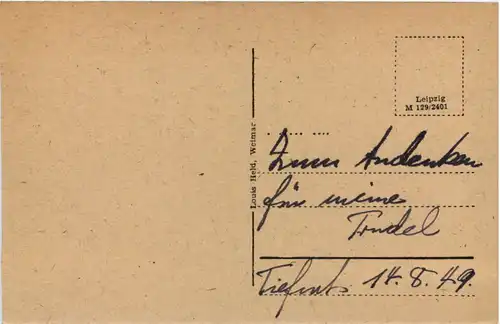 Leipzig
M 129/2401
Louis Held, Weimar
Zum Andenken
für meine
Trudel
14.8.49.